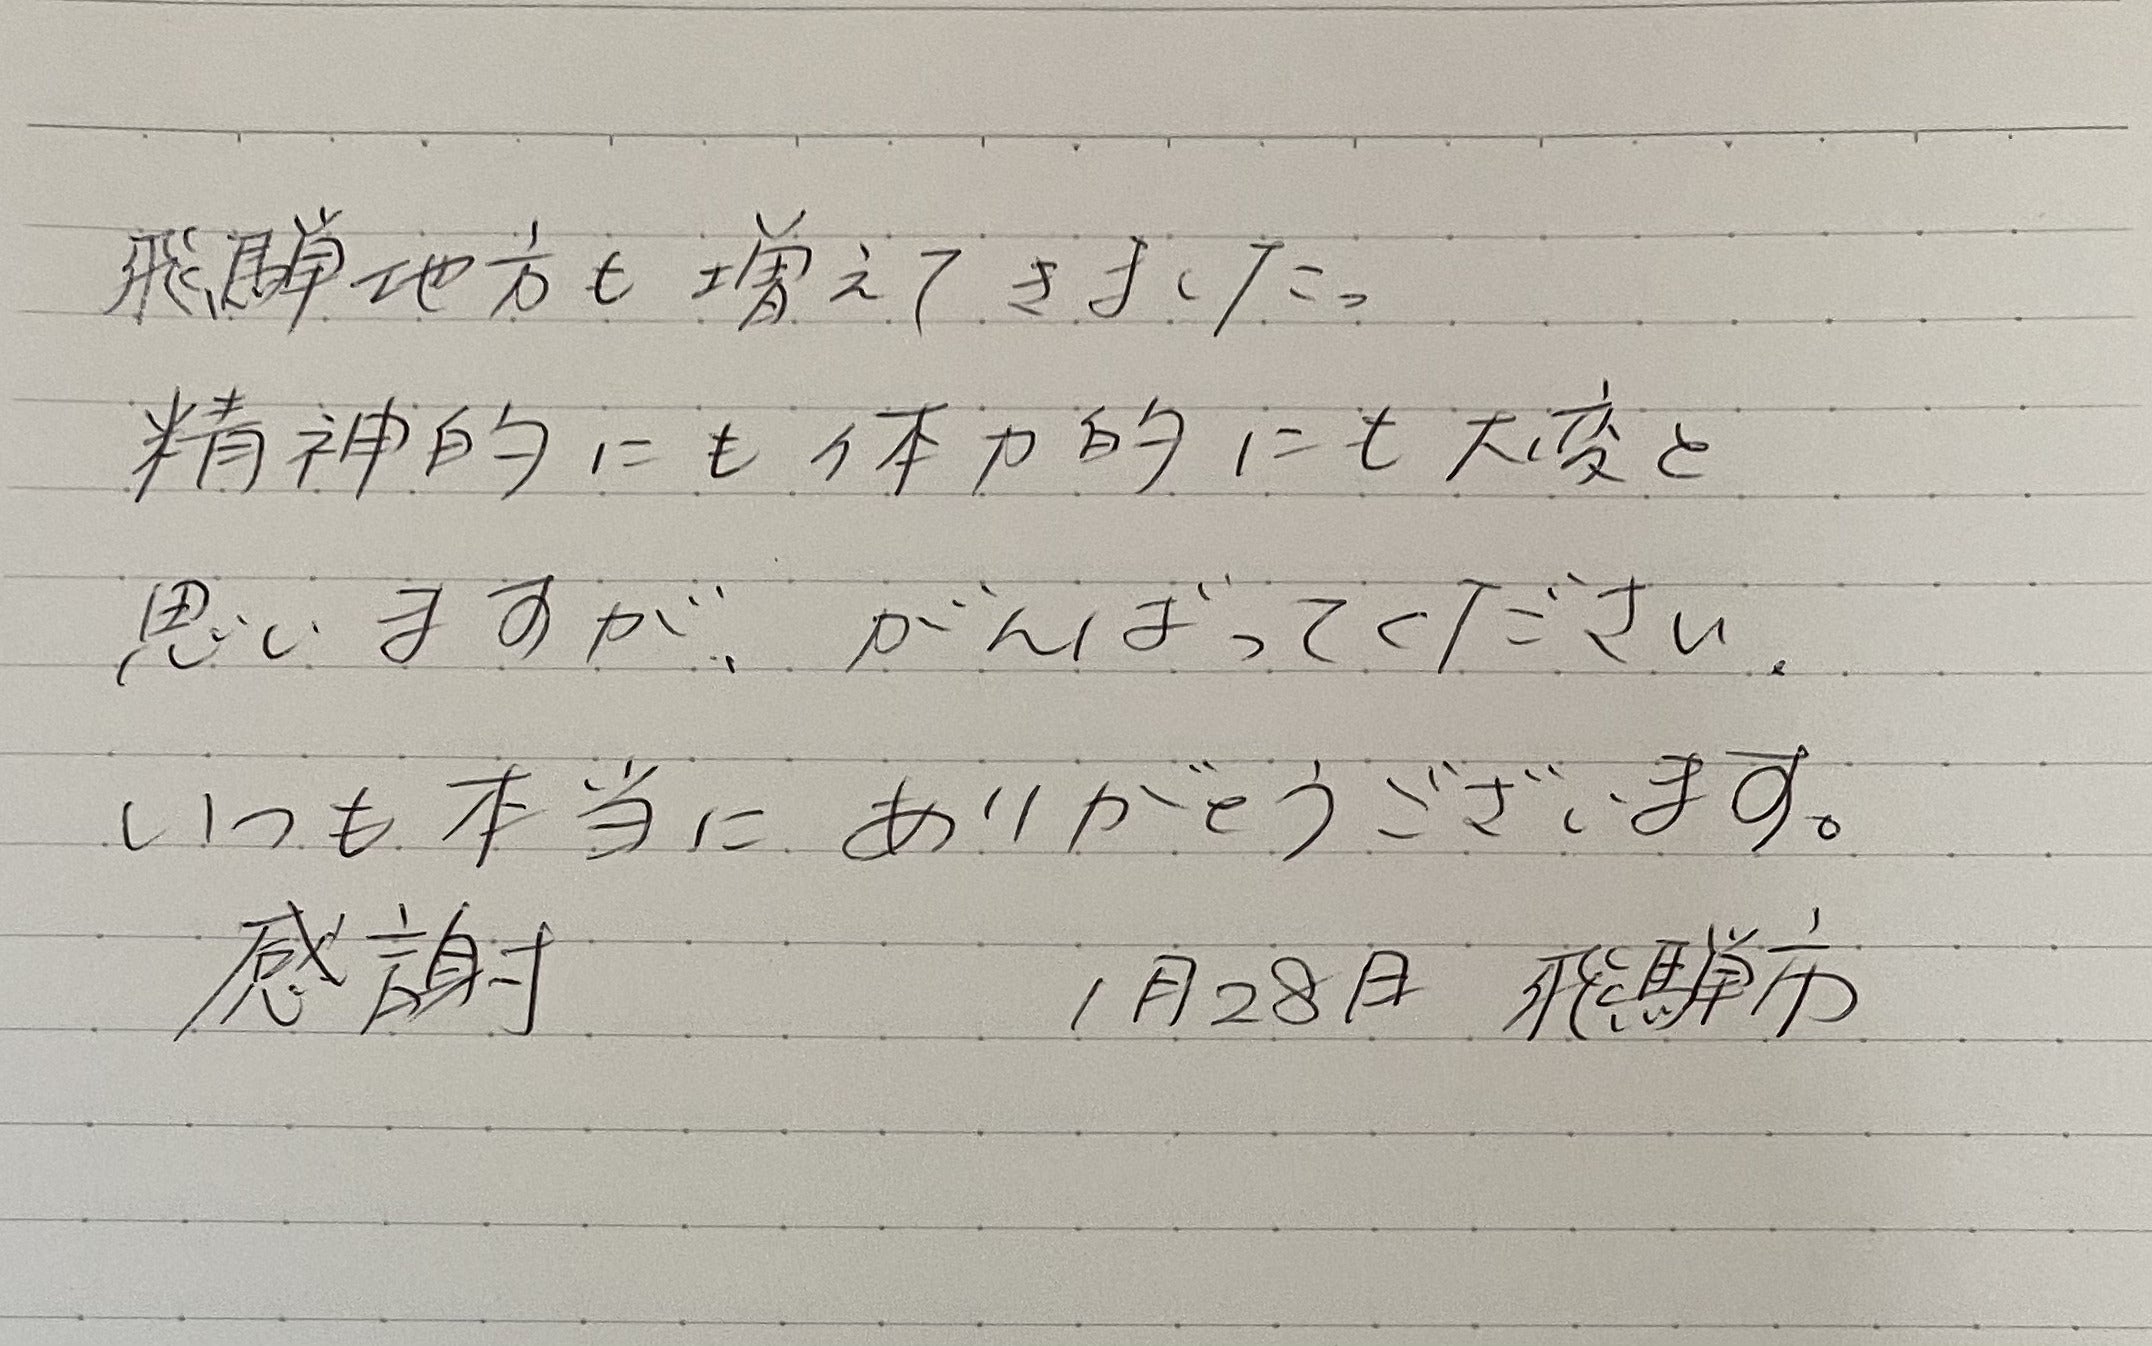 飛騨地方も増えてきました。
精神的にも体力的にも大変と
思いますが、がんばってください.
いつも本当にありがとうございます。
感謝 1月28日 飛騨市